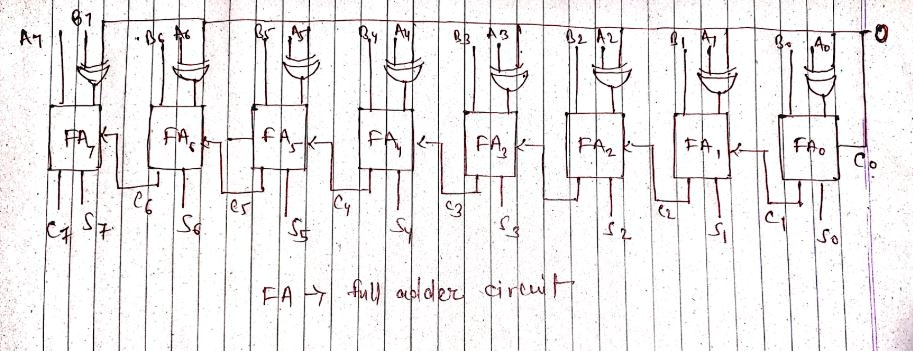 A7 B7 B6 A6 B5 A5 B4 A4 B3 A3 B2 A2 B1 A1 B0 A0 0
FA7 FA6 FA5 FA4 FA3 FA2 FA1 FA0 C0
C6 C5 C4 C3 C2 C1
C7 S7 S6 S5 S4 S3 S2 S1 S0
FA → full adder circuit